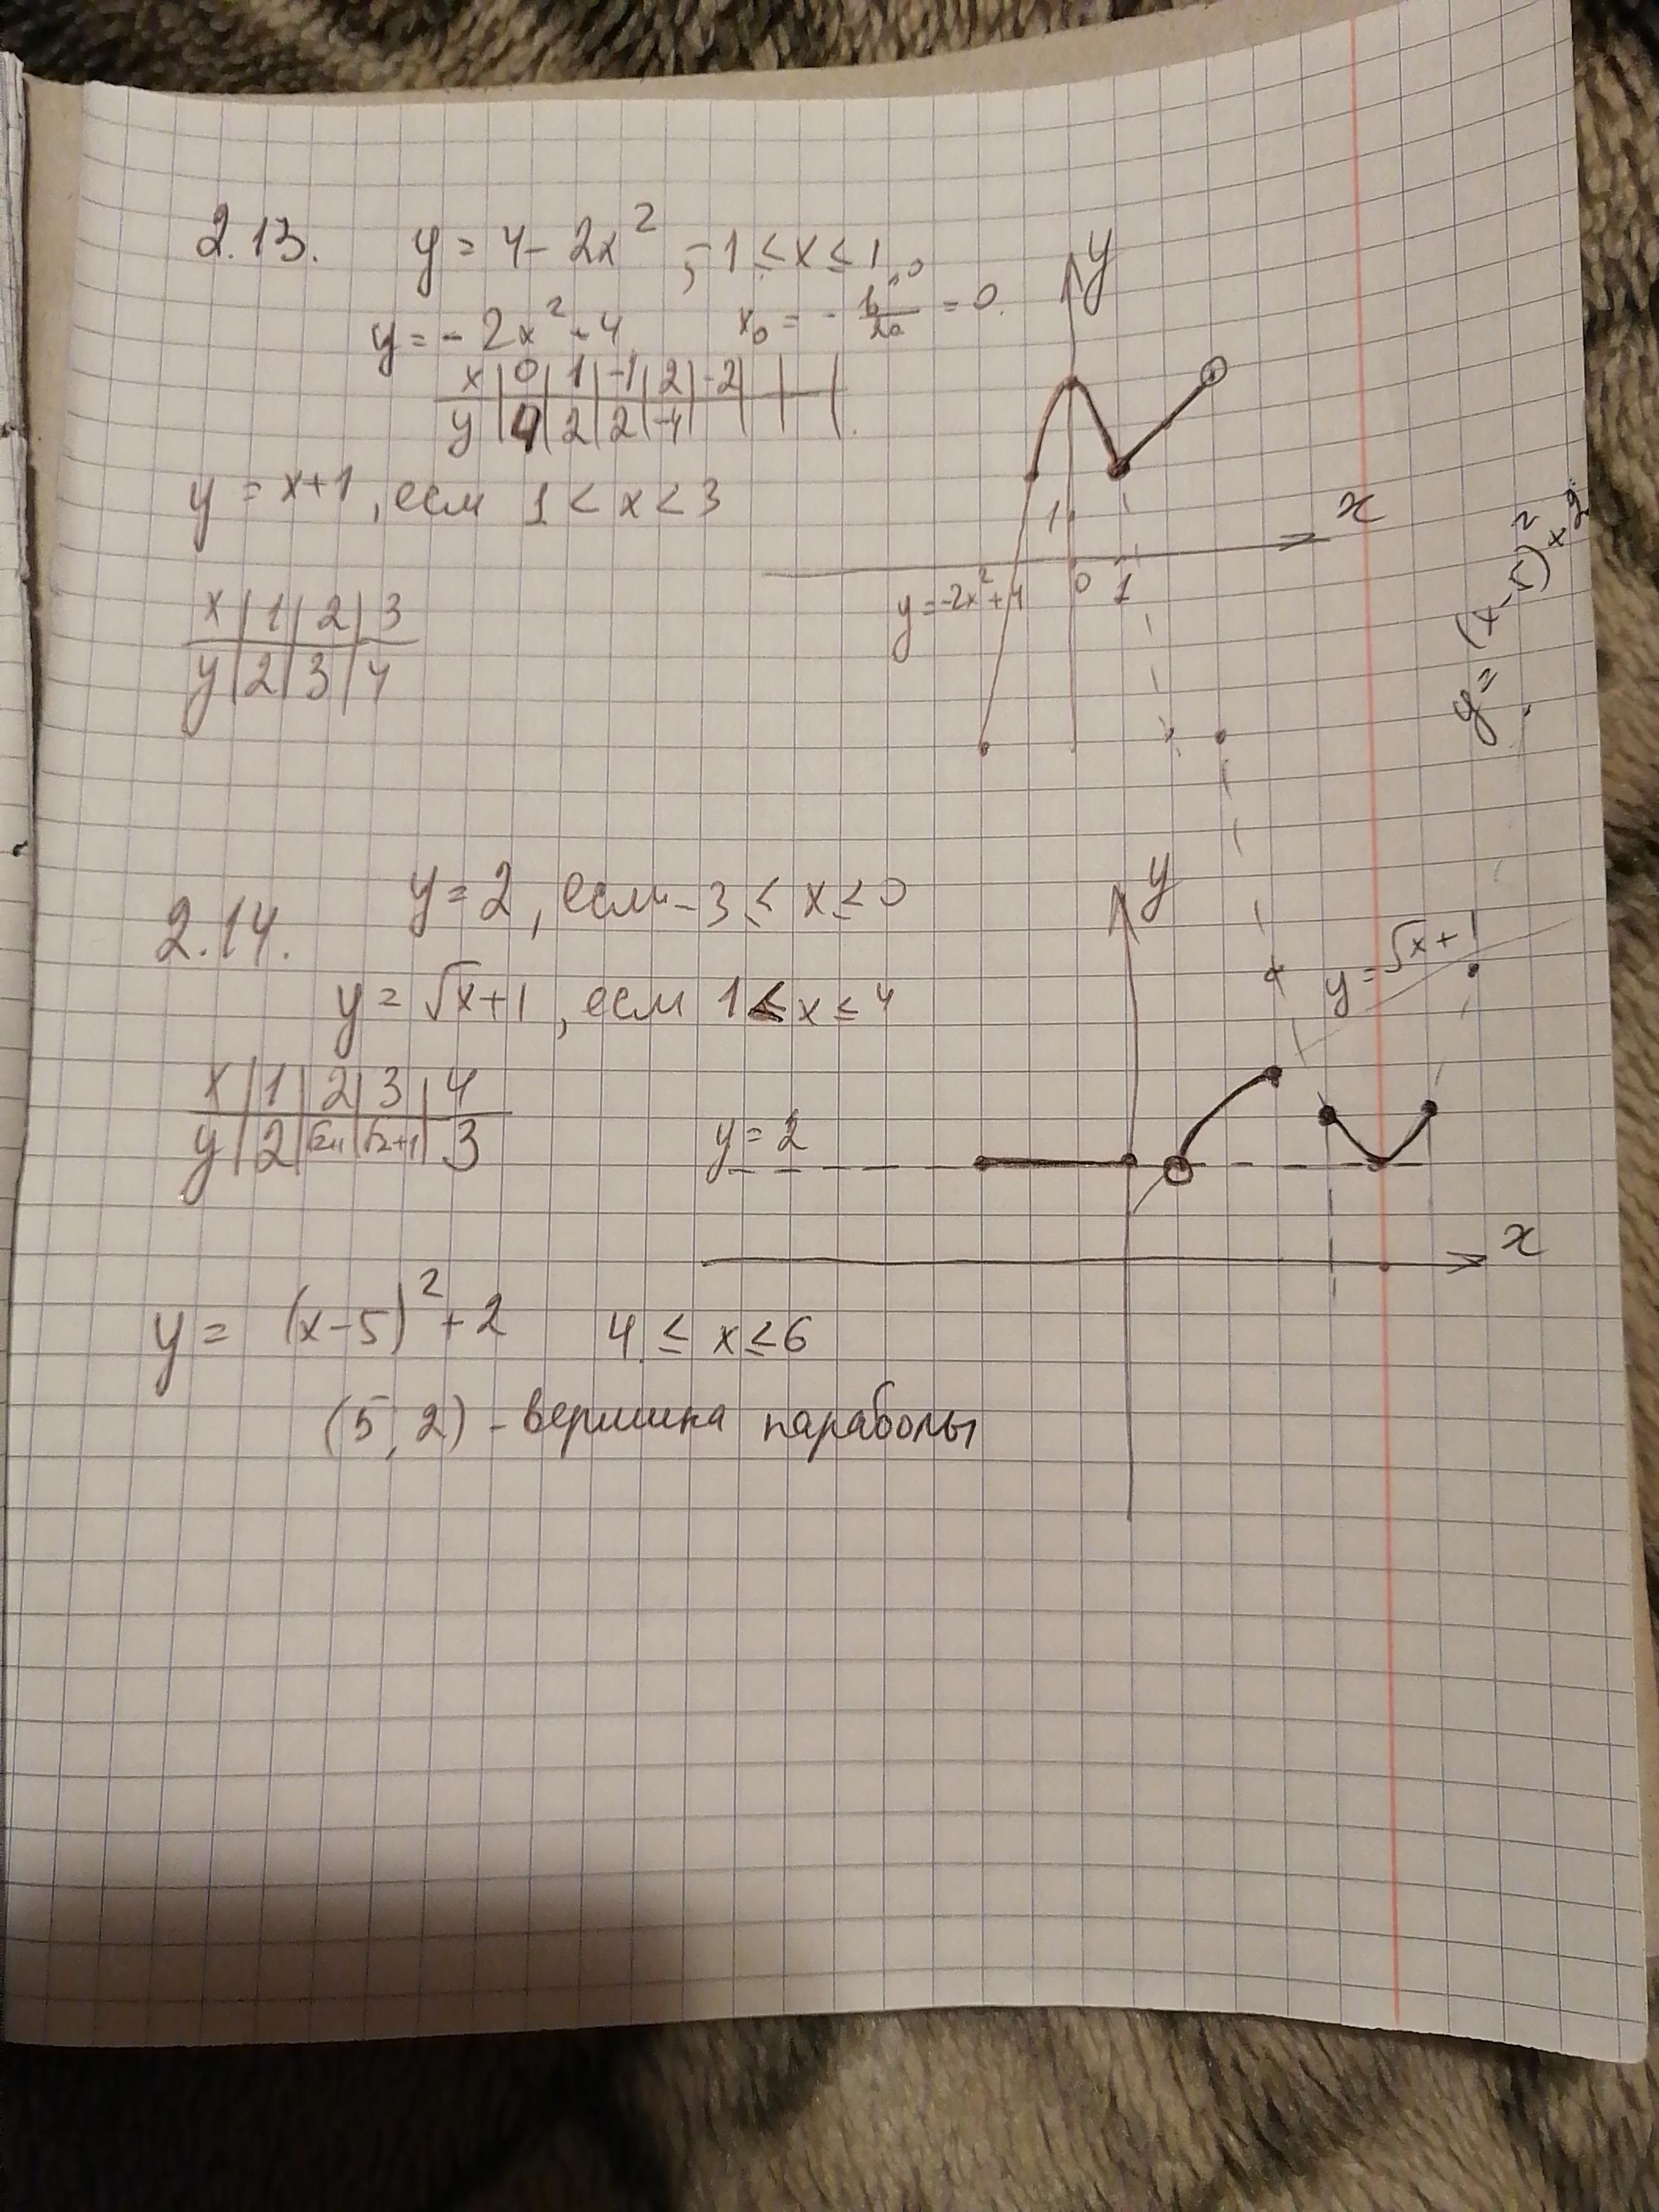 2.13. y = 4 - 2x², -1 ≤ x ≤ 1
y = -2x² + 4 x₀ = -b/2a = 0.
x | 0 | 1 | -1 | 2 | -2 |
y | 4 | 2 | 2 | -4 |
y = x+1, если 1 < x < 3
x | 1 | 2 | 3
y | 2 | 3 | 4
y
x
1
0 1
y = -2x² + 4
y = (x-5)² + 2
2.14. y = 2, если -3 ≤ x ≤ 0
y = √x + 1, если 1 < x ≤ 4
x | 1 | 2 | 3 | 4
y | 2 | √2+1 | √2+1 | 3
y
y = √x + 1
y = 2
x
y = (x-5)² + 2 4 ≤ x ≤ 6
(5, 2) - вершина параболы